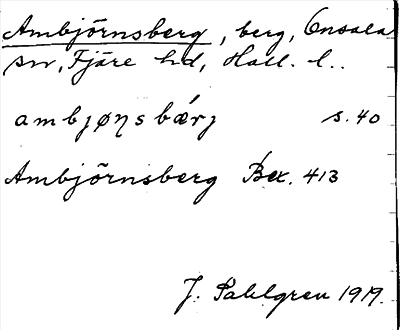 Ambjörnsberg, berg, Onsala
sn, Fjäre hd, Hall. l..
ambjøŋsbærj s. 40
Ambjörnsberg Bex. 413
J. Sahlgren 1919.